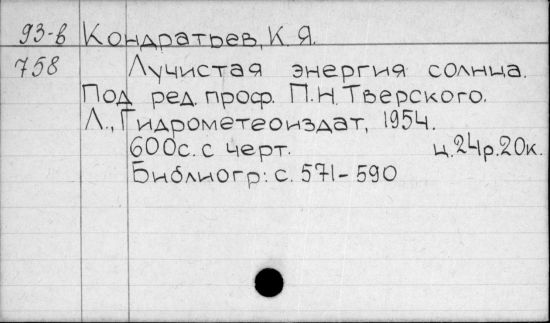 93-в Кондратьев, К.Я.
758 Лучистая энергия солнца.
Под ред. проф. П.Н. Тверского.
Л., Гидрометеоиздат, 1954.
600с. с черт. ц.24р.20к.
Библиогр: с. 571-590